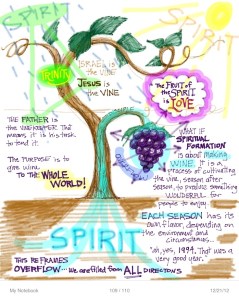 SPIRIT
SPIRIT
TRINITY
ISRAEL is
the VINE
JESUS is
the VINE
The FRUIT of
the SPIRIT
is LOVE
The FATHER is
the VINEKEEPER. That
means it is his task
to tend it.
The PURPOSE is to
give wine
TO THE WHOLE
WORLD!
WHAT IF
SPIRITUAL
FORMATION
is about MAKING
WINE. It is a
process of cultivating
the vine, season after
season, to produce something
WONDERFUL for
people to enjoy.
EACH SEASON has its
own flavor, depending on
the environment and
circumstances.
"ah, yes, 1994. That was a
very good year."
SPIRIT
THIS REFRAMES
OVERFLOW... we are filled from ALL DIRECTIONS
My Notebook
109 / 110
12/21/12